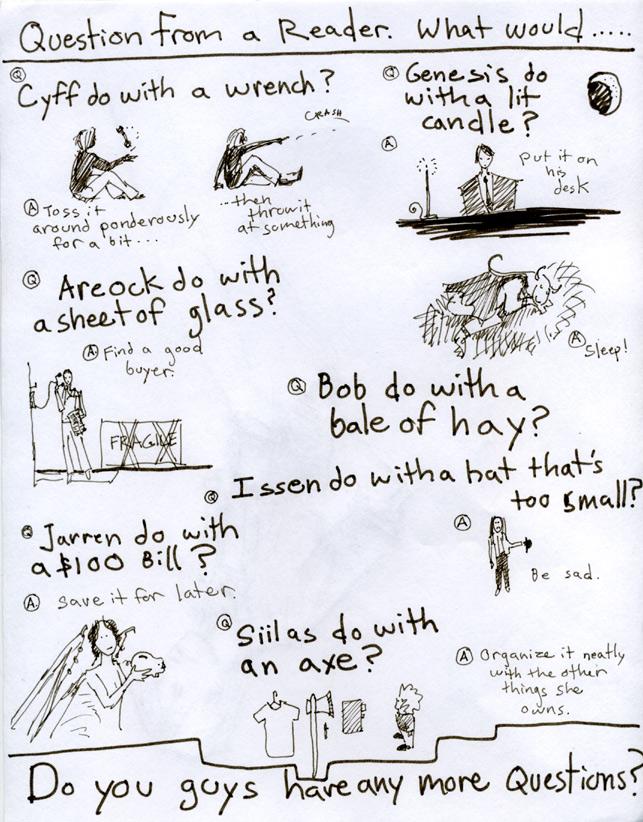 Question from a Reader. What would.....
Q
Cyff do with a wrench?
CRASH
A Toss it
around ponderously
for a bit...
...then
throw it
at something
Q Genesis do
with a lit
candle?
A
Put it on
his
desk
Q Areock do with
a sheet of glass?
A Find a good
buyer.
FRAGILE
A Sleep!
Q Bob do with a
bale of hay?
Q Issen do with a hat that's
too small?
A
Be sad.
Q Jarren do with
a $100 Bill?
A. Save it for later.
Q Siilas do with
an axe?
A Organize it neatly
with the other
things she
owns.
Do you guys have any more Questions?